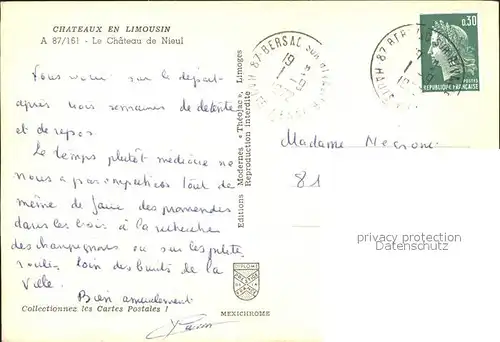 CHATEAUX EN LIMOUSIN
A 87/151 - Le Château de Nieul
Nous sur le départ
après trois semaines de détente
et de repos.
Le temps plutôt médiocre ne
nous a pas empêchés tout de
même de faire des promenades
dans les bois à la recherche
des champignons ou sur les petites
routes loin des bruits de la
ville.
Bien amicalement
Collectionnez les Cartes Postales !
Editions Modernes « Théojac », Limoges
Reproduction Interdite
MEXICHROME
87 BERSAC SUR RIVALIER
HAUTE
0,30
POSTES
REPUBLIQUE FRANÇAISE
Madame
81
privacy protection
Datenschutz